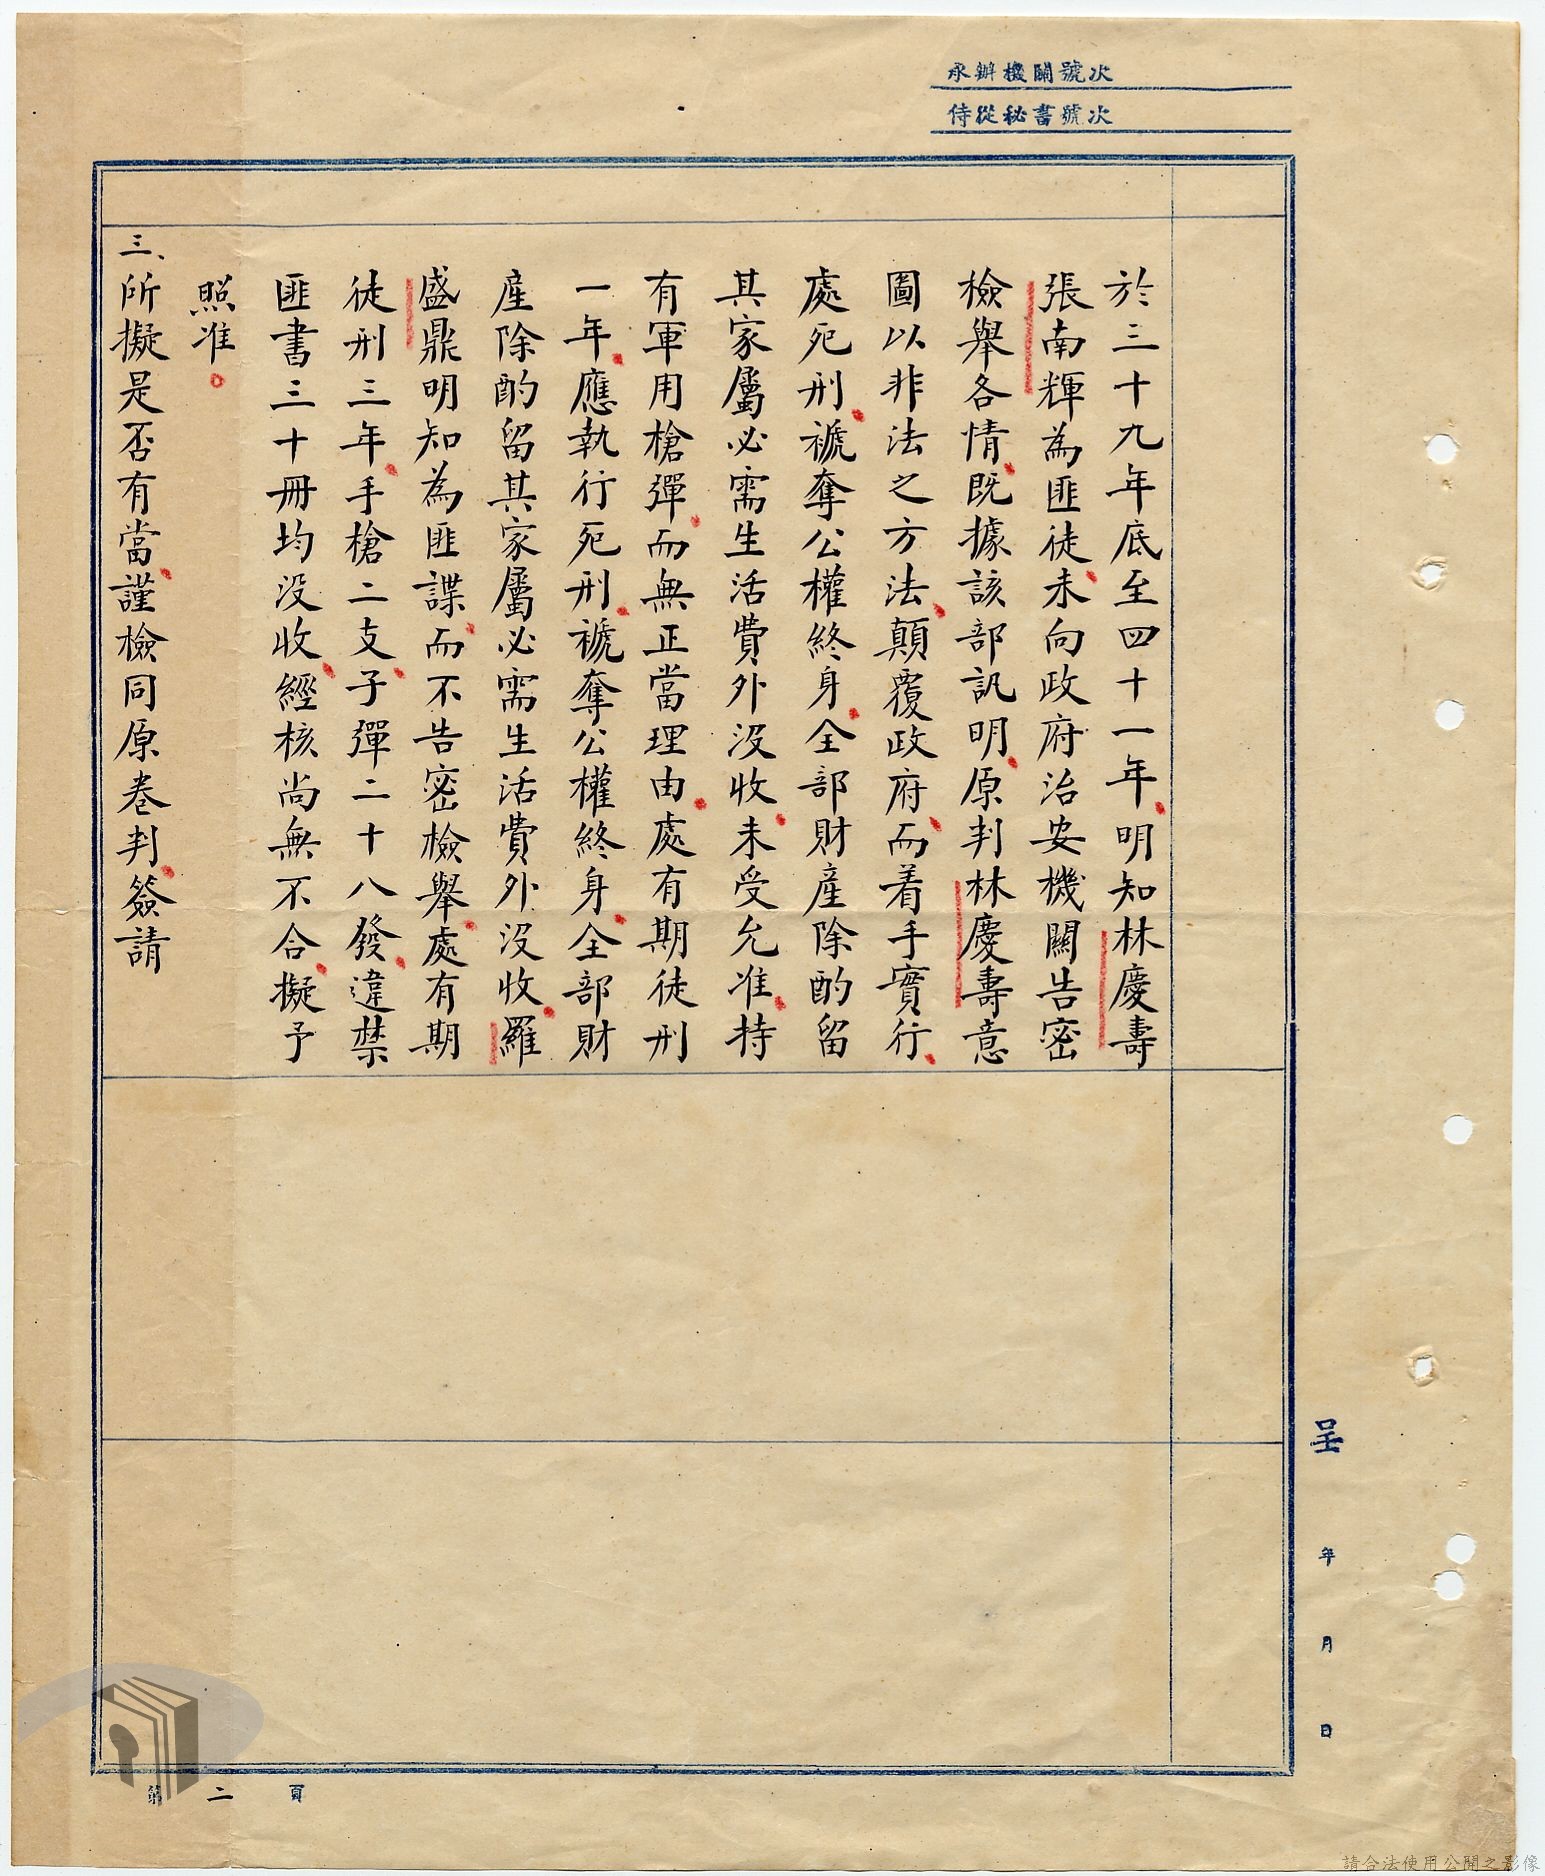 承辦機關號次
侍從秘書號次
於三十九年底至四十一年明知林慶壽
張南輝為匪徒未向政府治安機關告密
檢舉各情既據該部訊明原判林慶壽意
圖以非法之方法顛覆政府而着手實行
處死刑褫奪公權終身全部財產除酌留
其家屬必需生活費外沒收未受允准持
有軍用槍彈而無正當理由處有期徒刑
一年應執行死刑褫奪公權終身全部財
產除酌留其家屬必需生活費外沒收羅
盛鼎明知為匪諜而不告密檢舉處有期
徒刑三年手槍二支子彈二十八發違禁
匪書三十冊均沒收經核尚無不合擬予
照准。
三、所擬是否有當謹檢同原卷判簽請
呈 年 月 日
第二頁
請合法使用公開之影像